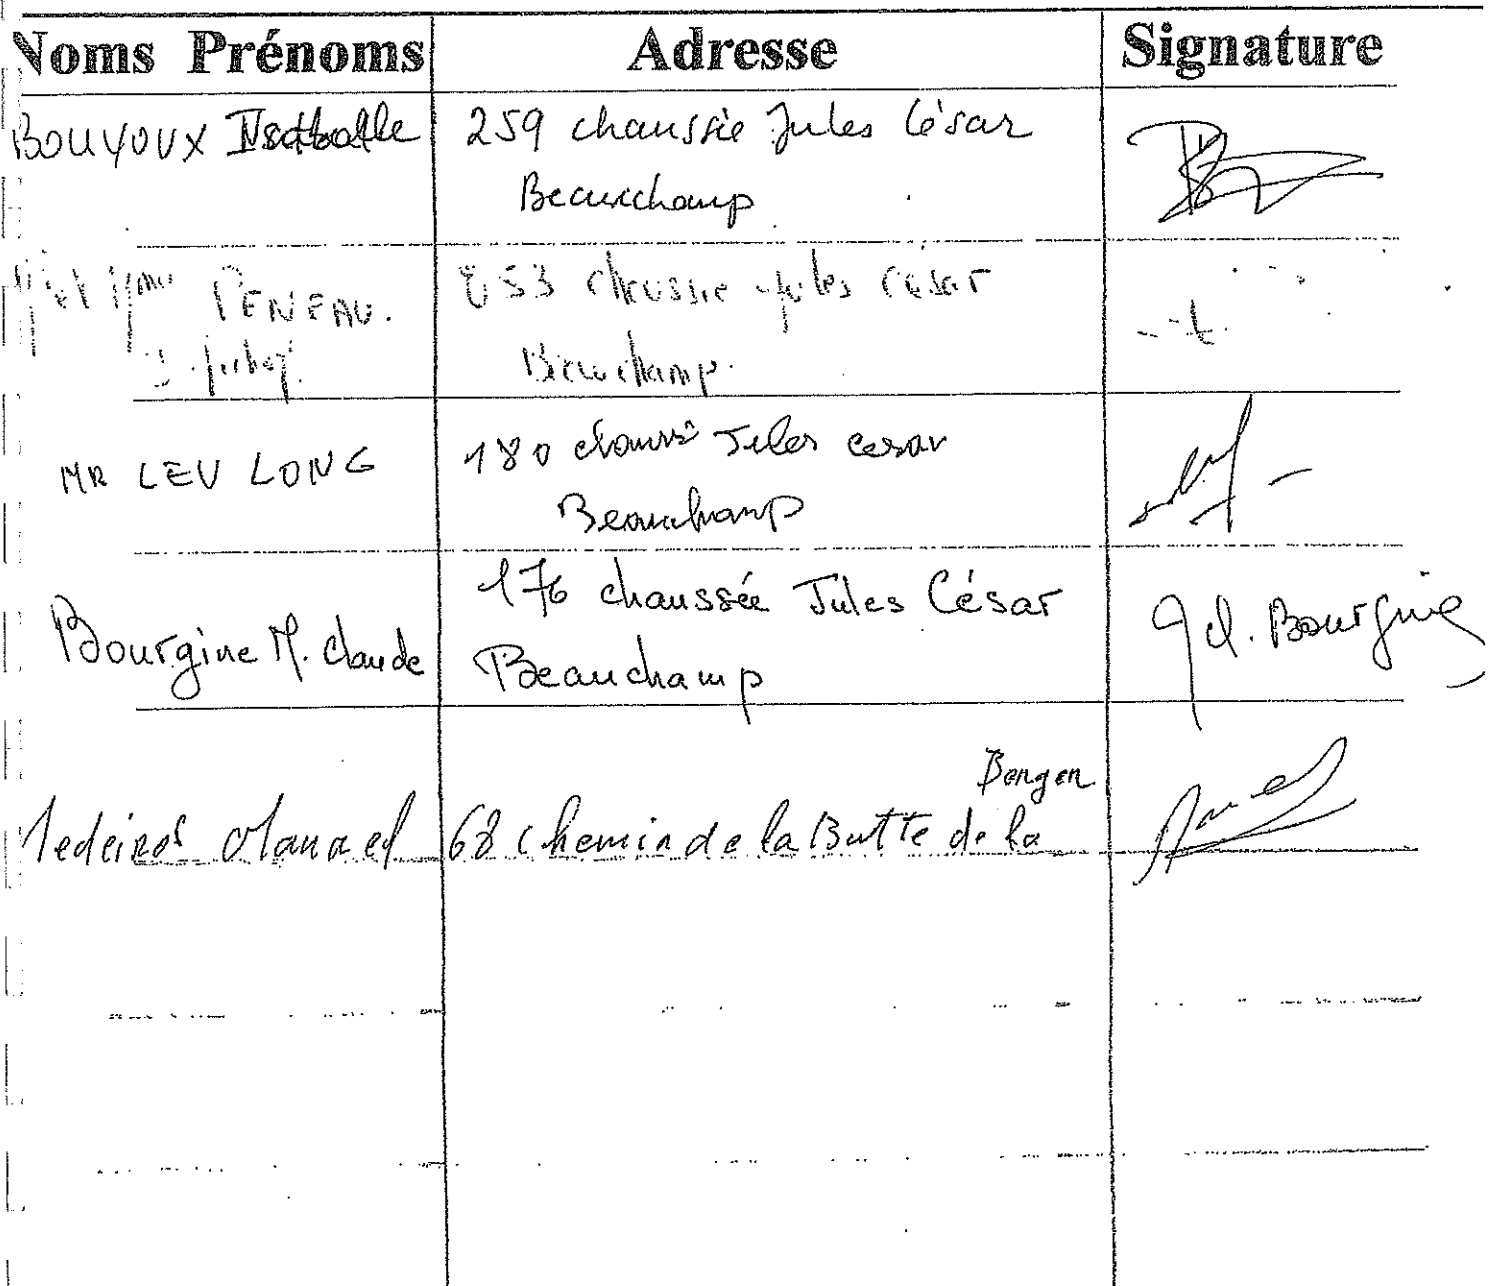 Noms Prénoms Adresse Signature
BOUYOUX Isabelle 259 chaussée Jules César
Beauchamp
PENEAU. 253 chaussée Jules César
Beauchamp.
MR LEV LONG 180 Jules cesar
Beauchamp
176 chaussée Jules César
Bourgine M. Claude Beauchamp Bourgine
Medeiros Manuel 68 chemin de la Butte de la Bergen